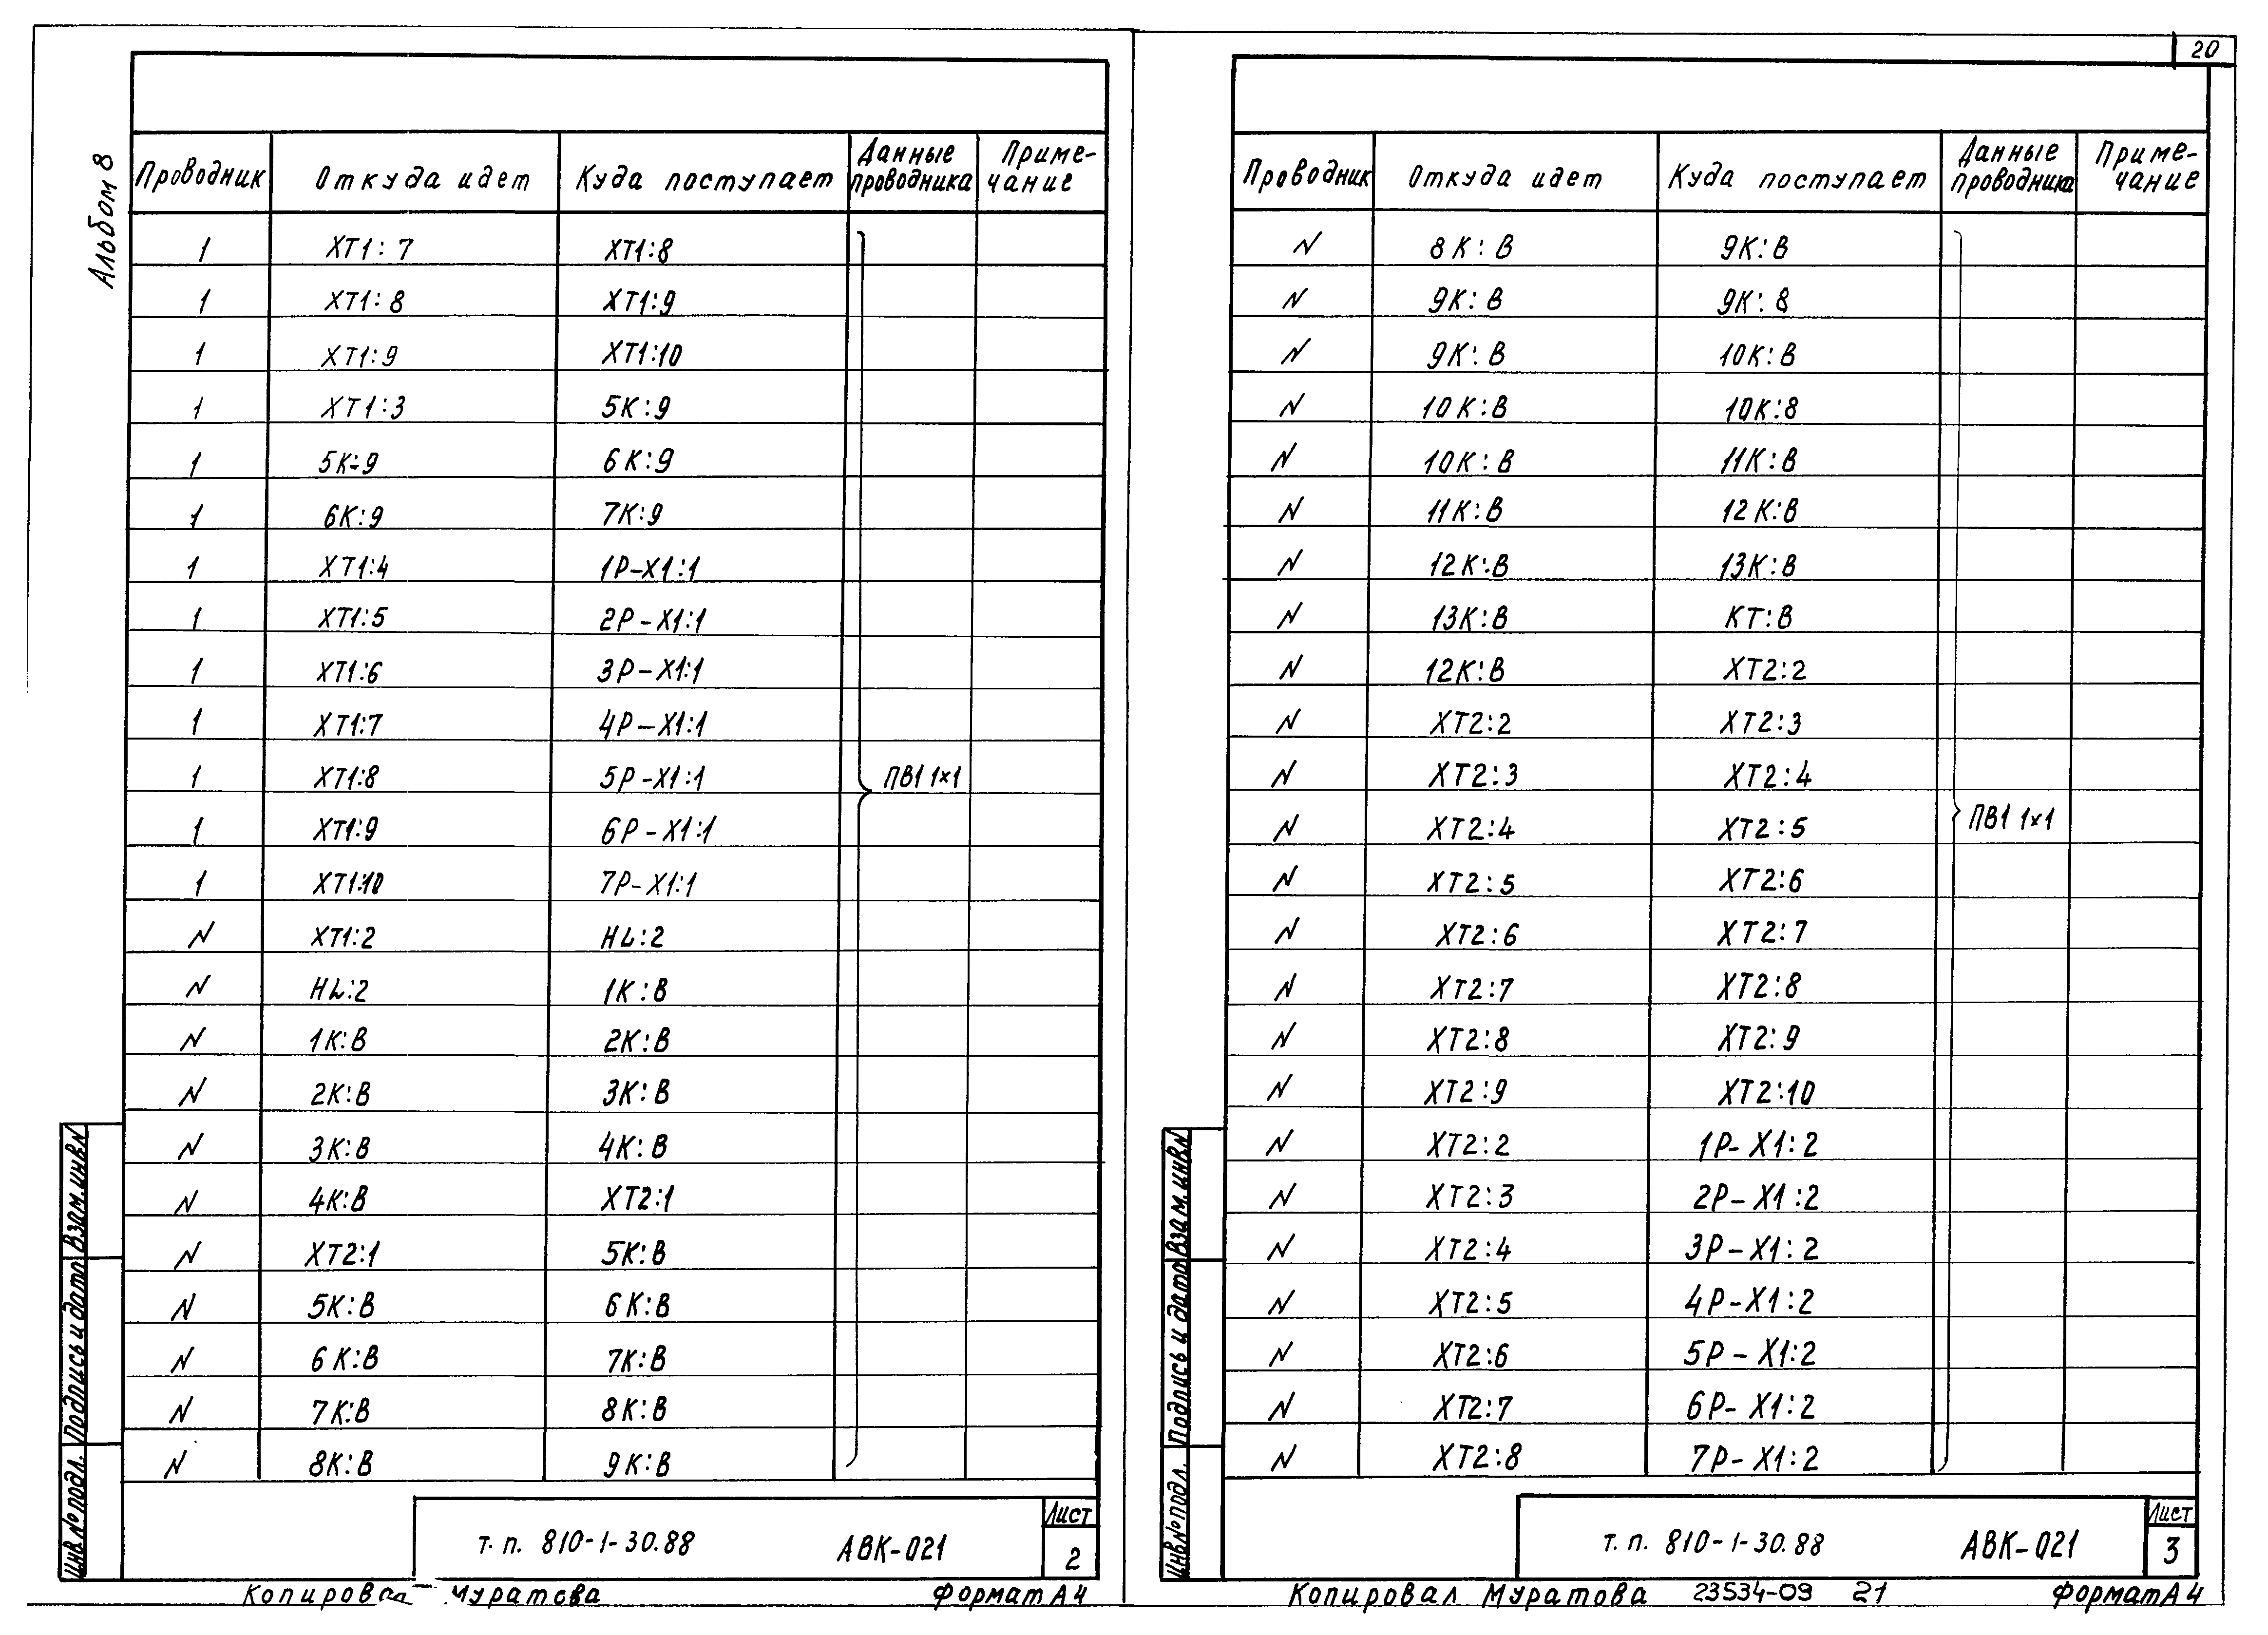 20
Альбом 8
Проводник Откуда идет Куда поступает Данные проводника Приме-чание
1 XT1:7 XT1:8
1 XT1:8 XT1:9
1 XT1:9 XT1:10
1 XT1:3 5К:9
1 5К:9 6К:9
1 6К:9 7К:9
1 XT1:4 1Р-X1:1
1 XT1:5 2Р-X1:1
1 XT1:6 3Р-X1:1
1 XT1:7 4Р-X1:1
1 XT1:8 5Р-X1:1 ПВ1 1×1
1 XT1:9 6Р-X1:1
1 XT1:10 7Р-X1:1
N XT1:2 HL:2
N HL:2 1К:В
N 1К:В 2К:В
N 2К:В 3К:В
N 3К:В 4К:В
N 4К:В XT2:1
N XT2:1 5К:В
N 5К:В 6К:В
N 6К:В 7К:В
N 7К:В 8К:В
N 8К:В 9К:В
Взам.инв.N
Подпись и дата
Инв.№подл.
т.п. 810-1-30.88 АВК-021 Лист 2
Копировал Муратова Формат А4
Проводник Откуда идет Куда поступает Данные проводника Приме-чание
N 8К:В 9К:В
N 9К:В 9К:8
N 9К:В 10К:В
N 10К:В 10К:8
N 10К:В 11К:В
N 11К:В 12К:В
N 12К:В 13К:В
N 13К:В КТ:В
N 12К:В XT2:2
N XT2:2 XT2:3
N XT2:3 XT2:4
N XT2:4 XT2:5 ПВ1 1×1
N XT2:5 XT2:6
N XT2:6 XT2:7
N XT2:7 XT2:8
N XT2:8 XT2:9
N XT2:9 XT2:10
N XT2:2 1Р-X1:2
N XT2:3 2Р-X1:2
N XT2:4 3Р-X1:2
N XT2:5 4Р-X1:2
N XT2:6 5Р-X1:2
N XT2:7 6Р-X1:2
N XT2:8 7Р-X1:2
Взам.инв.N
Подпись и дата
Инв.№подл.
т.п. 810-1-30.88 АВК-021 Лист 3
Копировал Муратова 23534-09 21 Формат А4